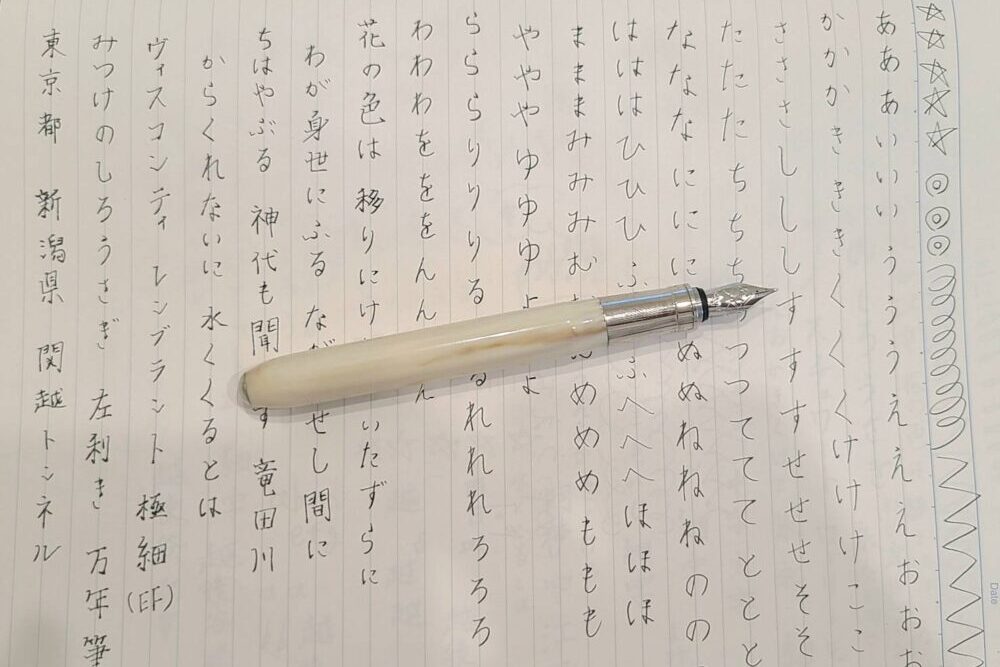 あああいいいうううえええおおお
かかかきききくくくけけけここ
さささしししすすすせせせそそ
たたたちちち つつてててととと
なななににに ぬぬねねねのの
はははひひひふ ふへへへほほほ
まままみみみむ めめめももも
やややゆゆゆよ よ
らららりりりる るれれれろろろ
わわわをををんん ん
花の色は 移りにけ いたずらに
わが身世にふる なが せし間に
ちはやぶる 神代も聞 ず 竜田川
からくれないに 水くくるとは
ヴィスコンティ レンブラント 極細(EF)
みつけのしろうさぎ 左利き 万年筆
東京都 新潟県 関越トンネル
Date